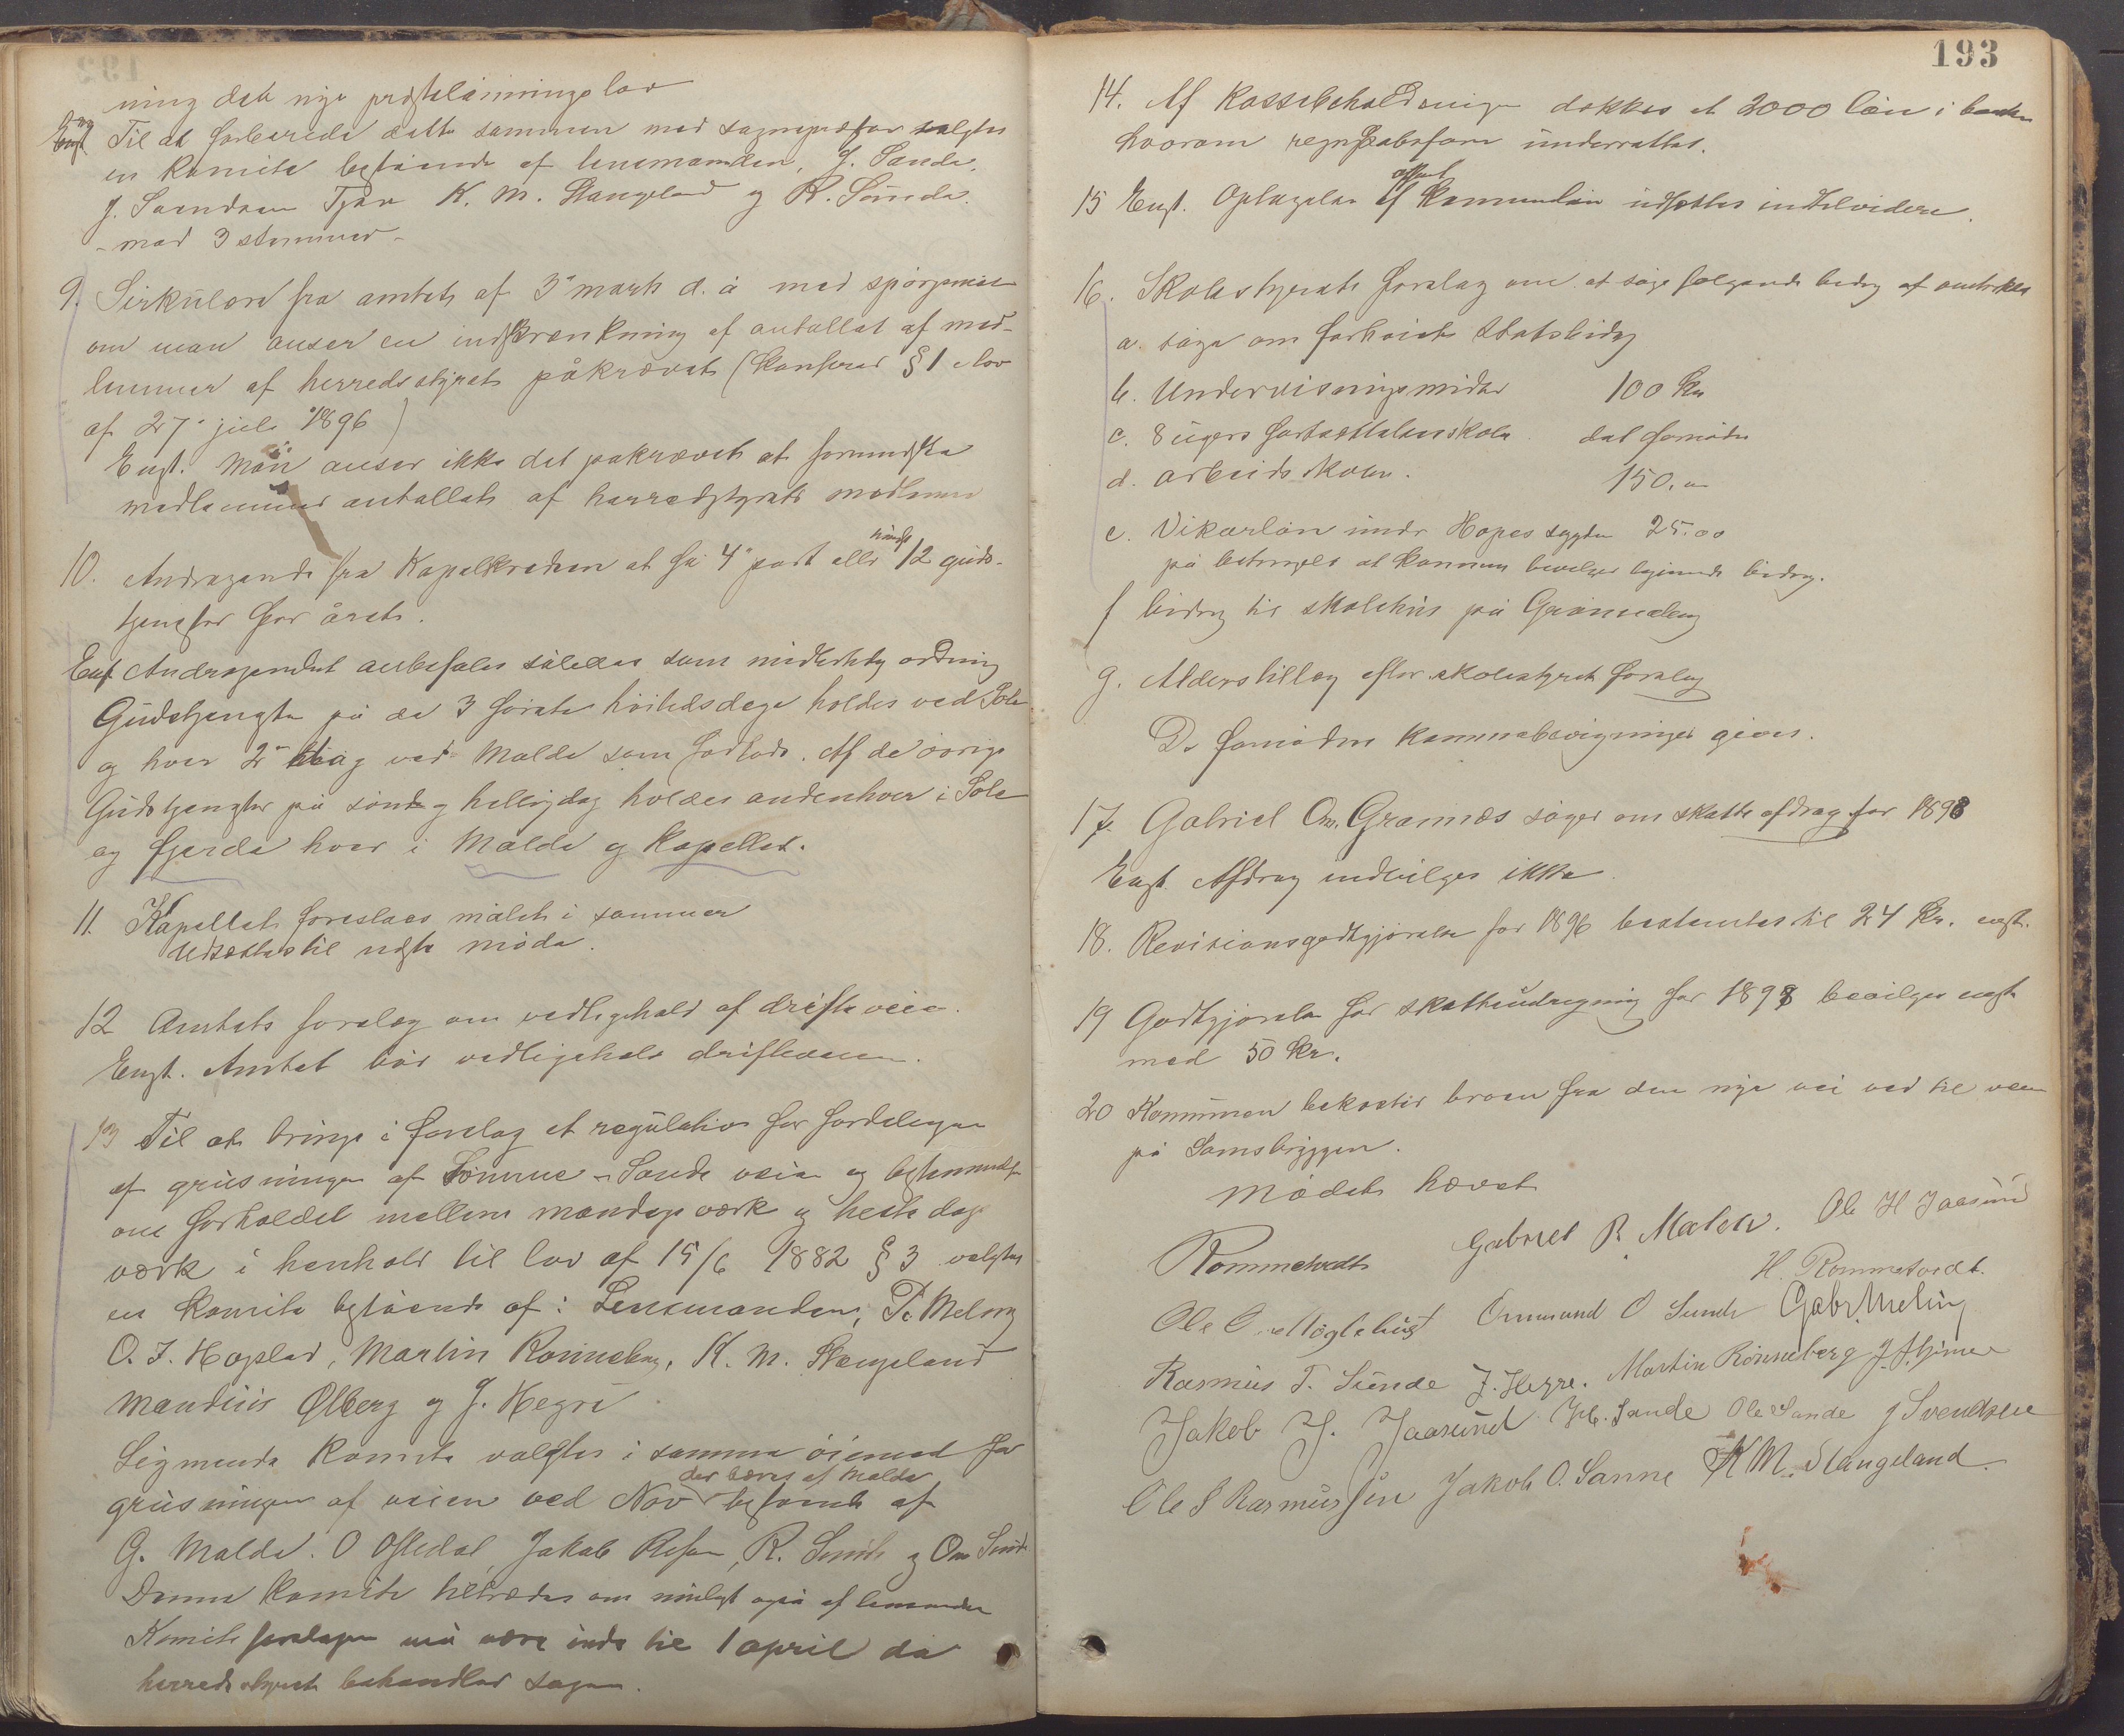 ning det nye præstelønningslov
Engst Til at forberede dette sammen med sogneprest valgtes
en komite bestående af lensmanden, J. Sande,
J. Svendsen Tjøn K. M. Stangeland og R. Sunde.
- mod 3 stemmer -
9. Sirkulære fra amtet af 3' marts d. å med spørgsmål
om man anser en indskrænkning af antallet af med-
lemmer af herredsstyret påkrævet (Konferer § 1 i lov
af 27' juli 1896)
Engst. Man anser ikke det påkrævet at formindske
medlemmer antallet af herredsstyrets medlemmer
10. Andragende fra Kapelkredsen at få 4' part eller mindst 12 guds-
tjenester for året.
Engst Andragendet anbefales således som midlertidig ordning
Gudstjeneste på de 3 første høitidsdage holdes ved Sole
og hver 2' dag ved Malde som forhode. Af de øvrige
Gudstjenester på søn og helligdag holdes andenhver i Sole
og fjerde hver i Malde og Kapellet.
11. Kapellet foreslaaes målet i sommer
Udsættes til neste møde.
12 Amtets forslag om vedligehold af driftevein.
Engst. Amtet bør vedligeholde driftevein.
13 Til at bringe i forslag et regulativ for fordelingen
af grusningen af Sømme - Sande veien og bestemmelse
om forholdet mellem mandsværk og heste dags
værk i henhold til lov af 15/6 1882 § 3 valgtes
en komite bestående af: Lensmanden, P. Meling
O. J. Hogstad, Martin Rønneberg, K. M. Stangeland
Mauditis Ølberg og J. Hegre
Lignende Komite valgtes i samme øiemed for
der bæres af Malde
grusningen af veien ved Nov bestående af
G. Malde. O Oftedal, Jakob Risa, R. Sunde og Om Sunde
Denne komite tiltrædes om muligt også af lensmanden
Komite forslagene må være inde til 1 april da
herredsstyret behandler sagen.
193
14. Af Kassebeholdningen dækkes et 2000 lån i banken
hvorom regnskabsfører underrettes.
15 Engst. Optagelse af Kommunelån udsættes indtilvidere.
16. Skolestyrets forslag om at søge følgende bidrag af amtskas
a. søge om forhøiet Statsbidrag
b. Undervisningsmidler 100 kr
c. 8 ugers fortsættelsesskole det fornødne
d. arbeids skolen. 150.00
e. Vikarløn under Hopes sygdom 25.00
på betingels at kommunen bevilger lignende bidrag.
f bidrag til skolehus på Grannenberg
g. Alderstillæg efter skolestyret forslag
De fornødne kommunebevilgninger gives.
17. Gabriel Om. Grannes søger om skatte afdrag for 1898
Engst. Afdrag indvilges ikke.
18. Revisionsgodtgjørelse for 1896 bestemtes til 24 kr. engst.
19 Godtgjørelse for skatteudregning for 1898 bevilges engst
med 50 kr.
20 Kommunen bekoster broen fra den nye vei ved til veien
på Sømsbryggen.
Mødet hævet
Rommetvedt Gabriel R Malde. Ole H Jaasund
H. Rommetvedt.
Ole Ommund O Sunde Gabr. Meling
Rasmus T. Sunde J. Hegre. Martin Rönneberg
Jakob J. Jaasund Jeb. Sande Ole Sande J Svendsen
Ole S Rasmussen Jakob O. Sanne K M. Stangeland